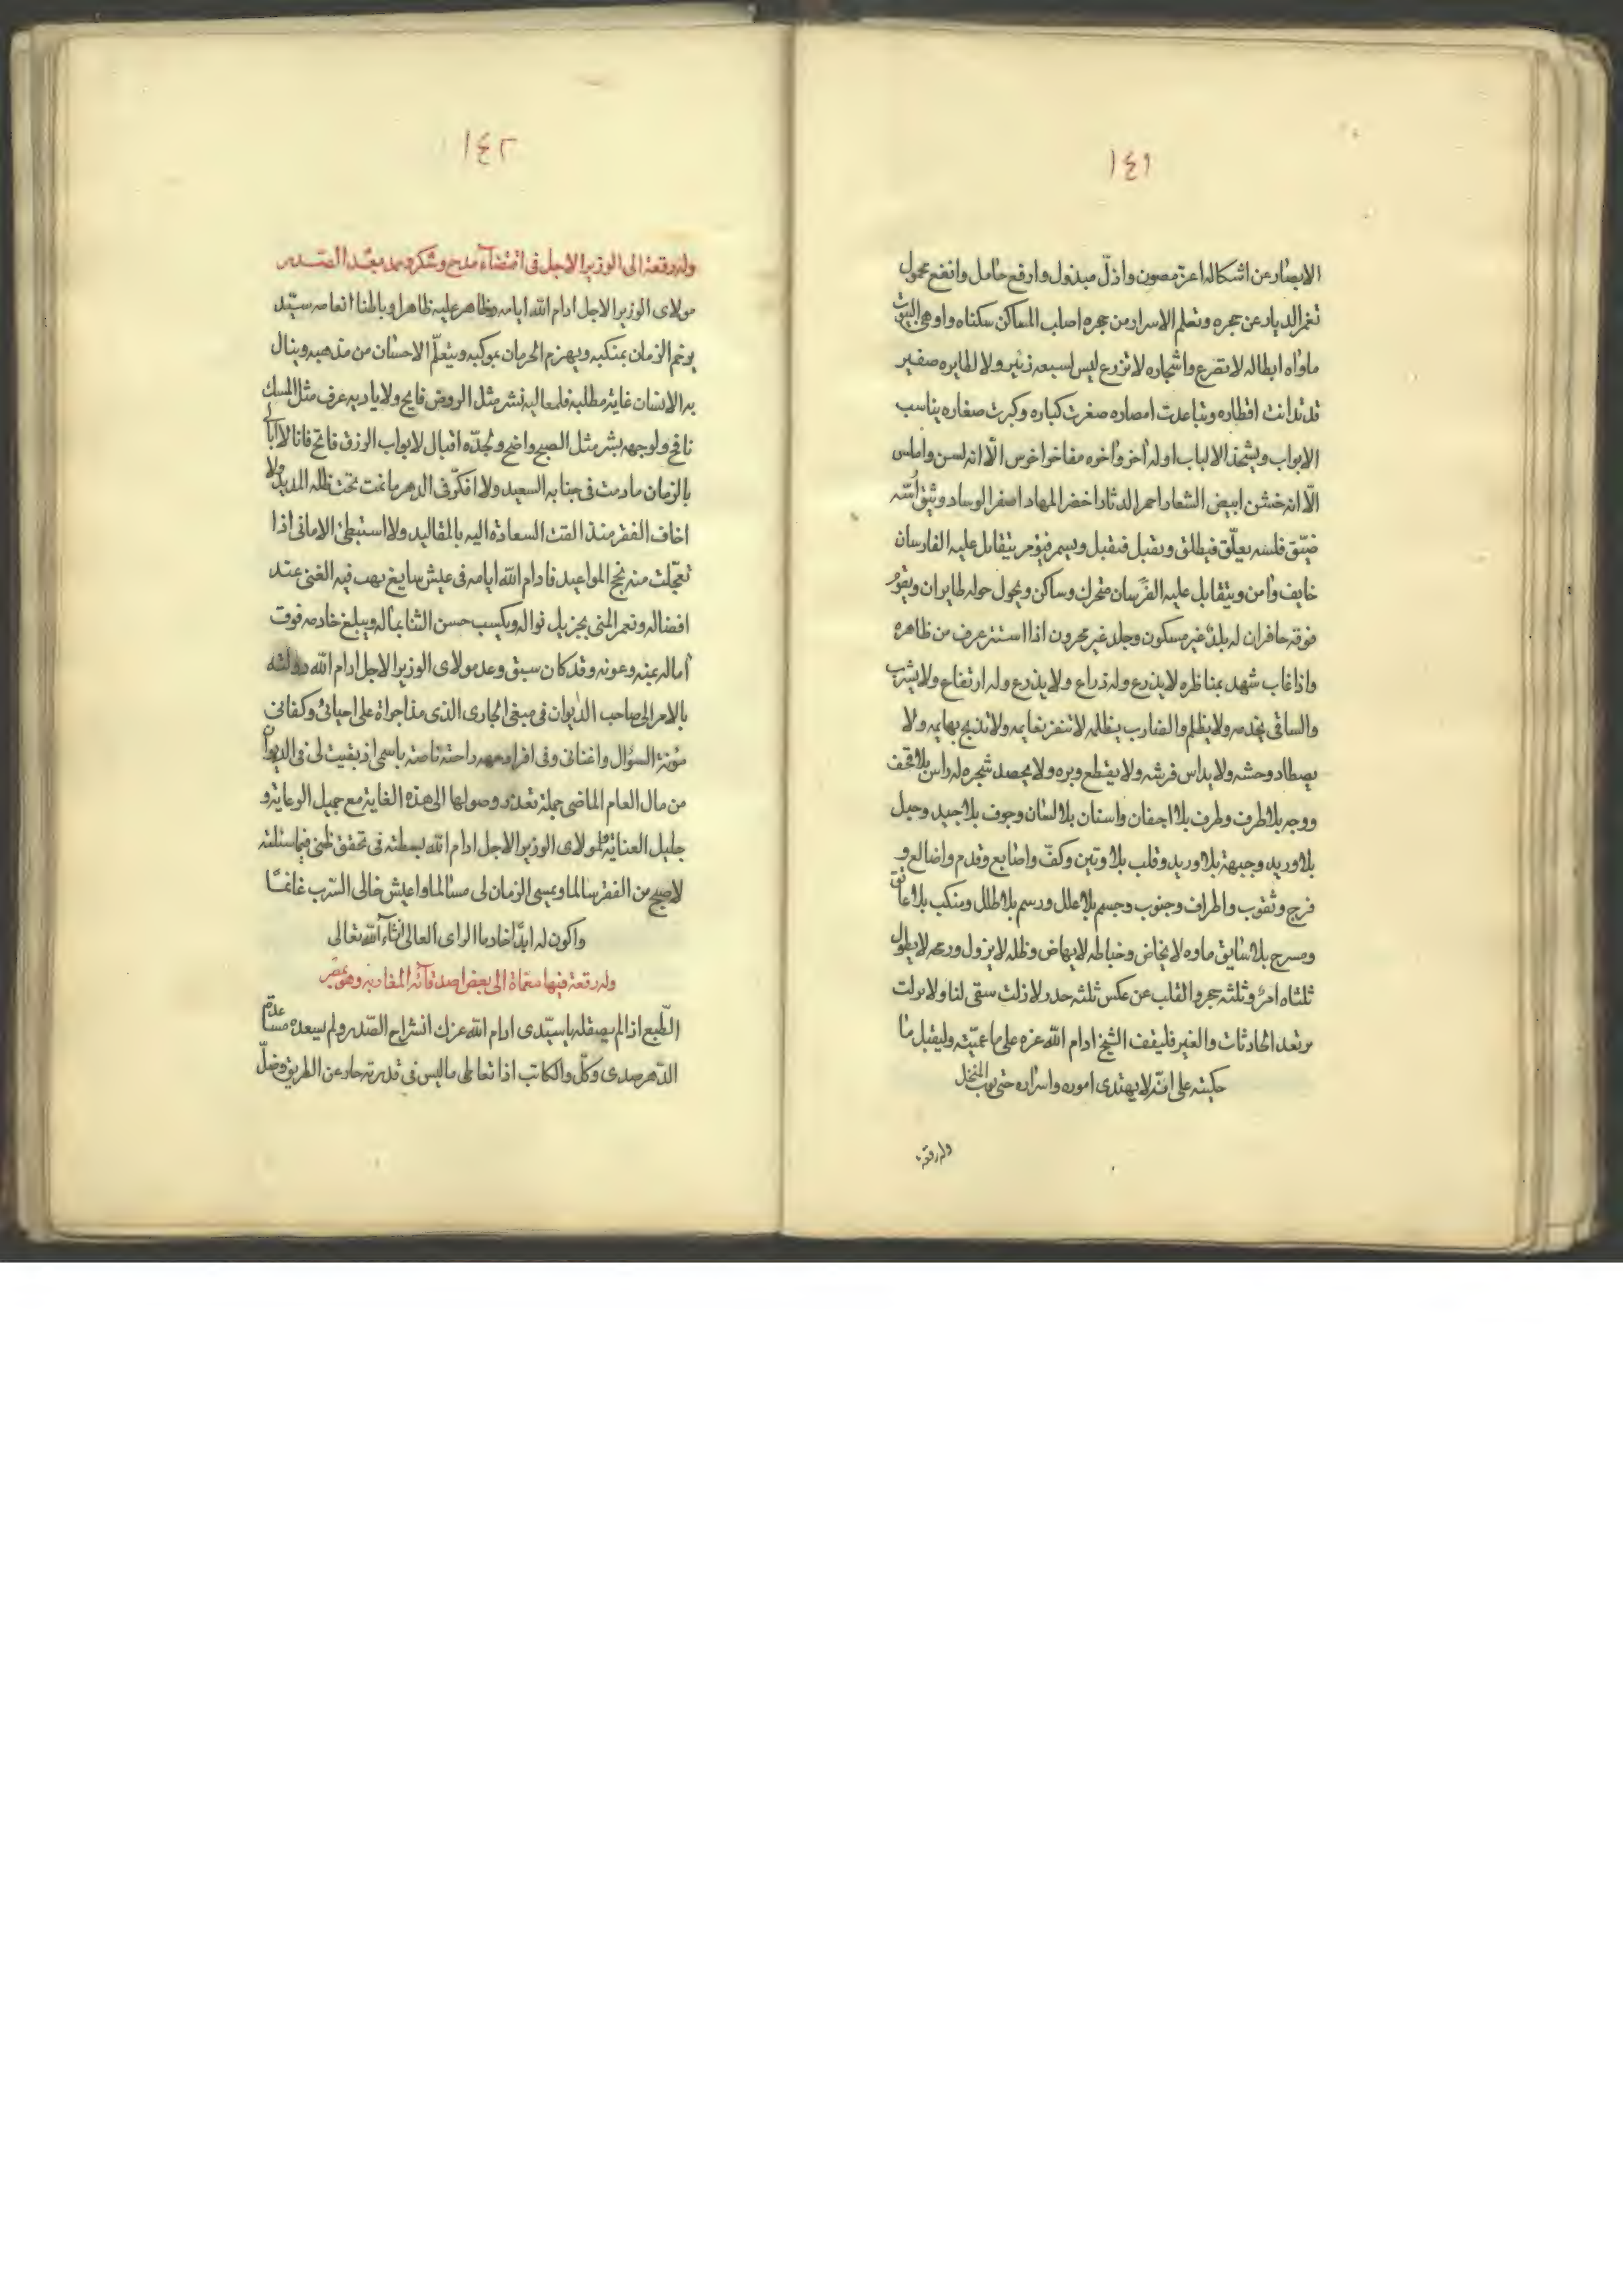 ١٤١
الابصار عن اشكاله اعز مصون واذلّ مبذول وارفع حامل وانفع محمول
تغمر الديار عن حجره وتعلم الاسرار من حجره اصلب المساكن سكناه واوهى البيوت
ماواه ابطاله لا تصرع واشجاره لا تزرع ليس لسبعه زئير ولا لطايره صفير
قد تدانت اقطاره وتباعدت امصاره صغرت كباره وكبرت صغاره يناسب
الابواب ويشحذ الالباب اوله آخر وآخره مفاخر اخرس الّا انه لسن واملس
الّا انه خشن ابيض الشعار احمر الدثار اخضر المهاد اصفر الوساد وثيق اُسّه
ضيّق فلسه يعلّق فيطلق ويقبل فيقبل ويسم فيؤمر يتقابل عليه الفارسان
خايف وآمن ويتقابل عليه الفرسان متحرك وساكن ويجول حوله طايران ويقوم
فوقه حافران له بلد غير مسكون وجلد غير محرون اذا استتر عرف من ظاهره
واذا غاب شهد بمناظره لا يذرع وله ذراع ولا يذرع وله ارتفاع ولا يشرب
والساقى يخدمه ولا يظلم والضارب يظلمه لا تنفر نعايمه ولا تذبح بهايمه ولا
يصطاد وحشه ولا يداس فرشه ولا يقطع وبره ولا يحصد شجره له راس بلا قحف
ووجه بلا طرف وطرف بلا اجفان واسنان بلا لسان وجوف بلا جيد وحبل
بلا وريد وجبهة بلا وريد وقلب بلا وتين وكفّ واصابع وقدم واضالع و
فرج وثقوب واطراف وجنوب وجسم بلا علل ورسم بلا طلل ومنكب بلا عاتق
ومسرج بلا سايق ماوه لا يخاض وخباطه لا يهاض وظله لا يزول ورمحه لا يطول
ثلثاه امرٌ وثلثه حجر والقلب عن عكس ثلثه حدر لا زلت سقى لنا ولا برلت
بعد الحادثات والغير فليقف الشيخ ادام الله عزه على ما عمّيته وليقبل ما
حكيته على انّه لا يهتدى اموره واسراره حتى المنخل
وله رقعة
١٤٢
وله رقعة الى الوزير الاجل فى اقتضاء مدح وشكر
مولاى الوزير الاجل ادام الله ايامه وظاهر عليه ظاهرا وباطنا انعامه سيّد
يزحم الزمان بمنكبه ويهزم الحرمان بموكبه ويتعلّم الاحسان من مذهبه وينال
به الانسان غاية مطلبه فلمعاليه نشر مثل الروض فايح ولاياديه عرف مثل المسك
نافح ولوجهه بشر مثل الصبح واضح ولجدّه اقبال لابواب الرزق فاتح فانا لا ابا
بالزمان ما دمت فى جنابه السعيد ولا افكّر فى الدهر ما نمت تحت ظله المديد ولا
اخاف الفقر منذ القت السعادة اليه بالمقاليد ولا استبطئ الامانى اذا
تعجّلت منه نجح المواعيد فادام الله ايامه فى عيش سايغ يهب فيه الغنى عند
افضاله ونعمر المنى بجزيل نواله ويكسب حسن الثنا بماله ويبلغ خادمه فوق
آماله بمنه وعونه وقد كان سبق وعد مولاى الوزير الاجل ادام الله دولته
بالامر الى صاحب الديوان فى مبقى الجارى الذى مذ اجراه على احيانى وكفانى
مؤنة السؤال واغنانى وفى افراد راحتة ناصة باسمى اذ بقيت لى فى الديوان
من مال العام الماضى جملة تعذّر وصولها الى هذه الغاية مع جميل الرعاية و
جليل العناية ولمولاى الوزير الاجل ادام الله بسطته فى تحقق ظنى فيما سئلته
لاصبح من الفقر سالما ويمسى الزمان لى مسالما واعيش خالى السّرب غانمًا
واكون له ابدًا خادما الراى العالى انشاء الله تعالى
وله رقعة فيها معمّاة الى بعض اصدقائه المغاربه وهو بمصر
الطّبع اذا لم يصقله يا سيّدى ادام الله عزك انشراح الصّدر ولم يسعده
الدّهر صدى وكلّ والكاتب اذا تعاطى ما ليس فى قدرته حاد عن الطريق وضلّ